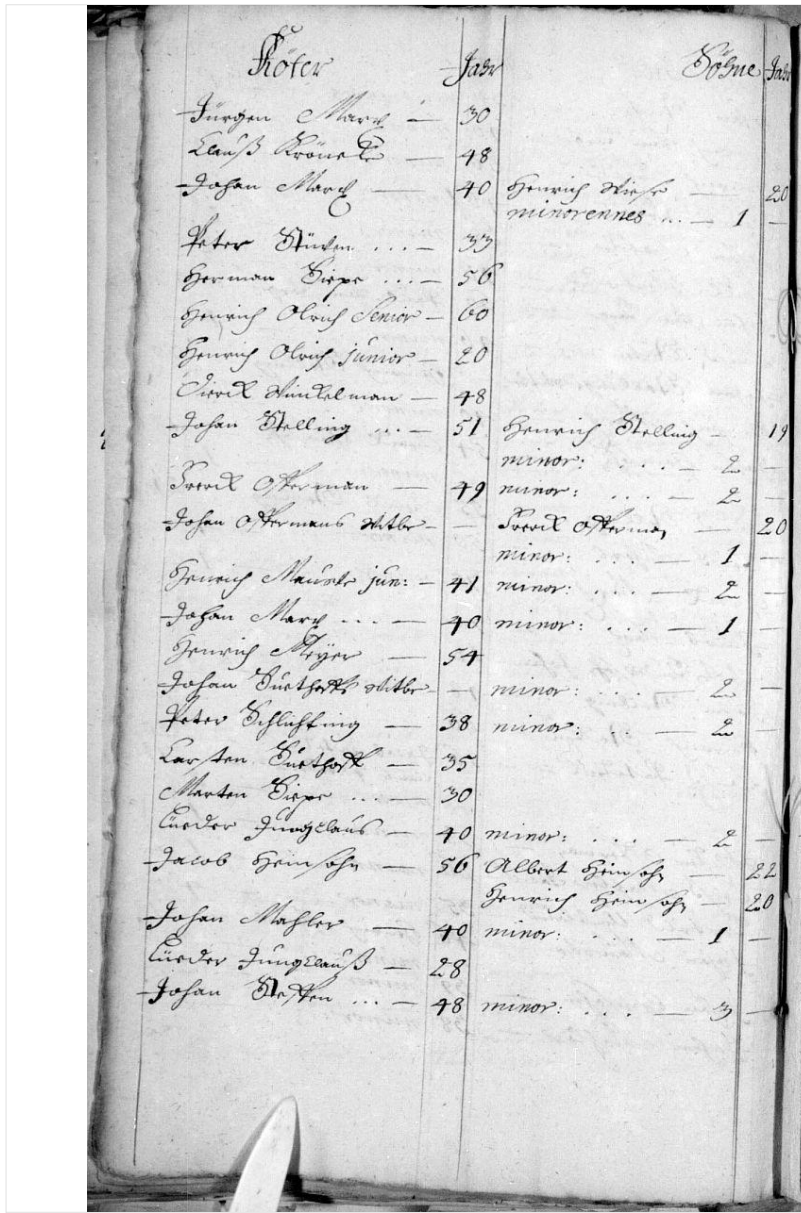 Köter Jahr Söhne Jahr
Jürgen Marx — 30
Clauß Krönecke — 48
Johan Marx — 40 Henrich Wiese — 20
minorennes ... — 1 —
Peter Stüven ... — 33
Herman Siepe ... — 56
Henrich Olrich Senior — 60
Henrich Olrich junior — 20
Dierck Winckelman — 48
Johan Stelling ... — 51 Henrich Stelling — 19
minor: .... — 2 —
Frerck Osterman — 49 minor: .... — 2 —
Johan Ostermans Witbe — — Frerck Osterman — 20
minor: .... — 1 —
Henrich Mauste jun: — 41 minor: .... — 2 —
Johan Marx ... — 40 minor: .... — 1 —
Henrich Meyer — 54
Johan Suethoffs Witbe — — minor: .... — 2 —
Peter Schlichting — 38 minor: .... — 2 —
Carsten Suethoff — 35
Marten Siepe ... — 30
Lüeder Jungclaus — 40 minor: .... — 2 —
Jacob Heinsohn — 56 Albert Heinsohn — 22
Henrich Heinsohn — 20
Johan Mahler — 40 minor: .... — 1 —
Lüeder Jungclauß — 28
Johan Steffen ... — 48 minor: .... — 3 —